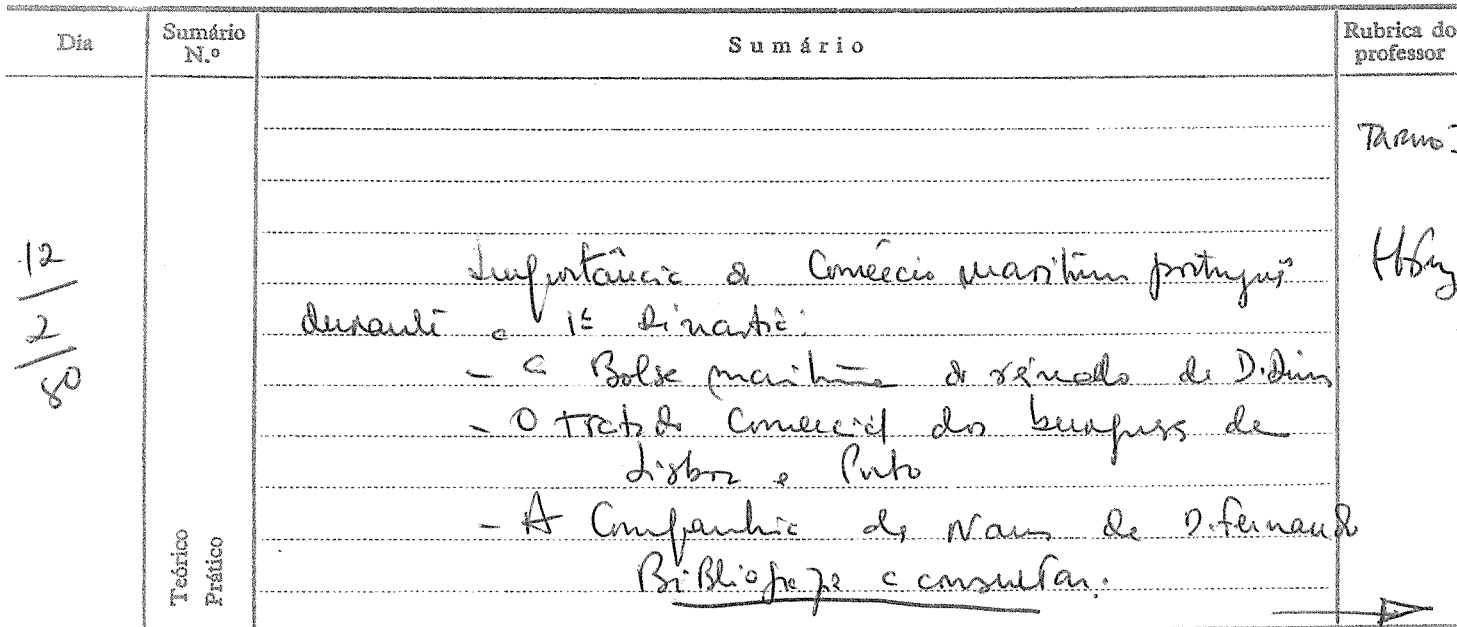 Dia
Sumário N.º
Sumário
Rubrica do professor
12/2/80
Importância do Comércio marítimo português
durante a 1ª Dinastia:
- a Bolsa marítima do reinado de D. Dinis
- O tratado Comercial dos burgueses de
Lisboa e Porto
- A Companhia das Naus de D. Fernando
Bibliografia a consultar:
Teórico
Prático